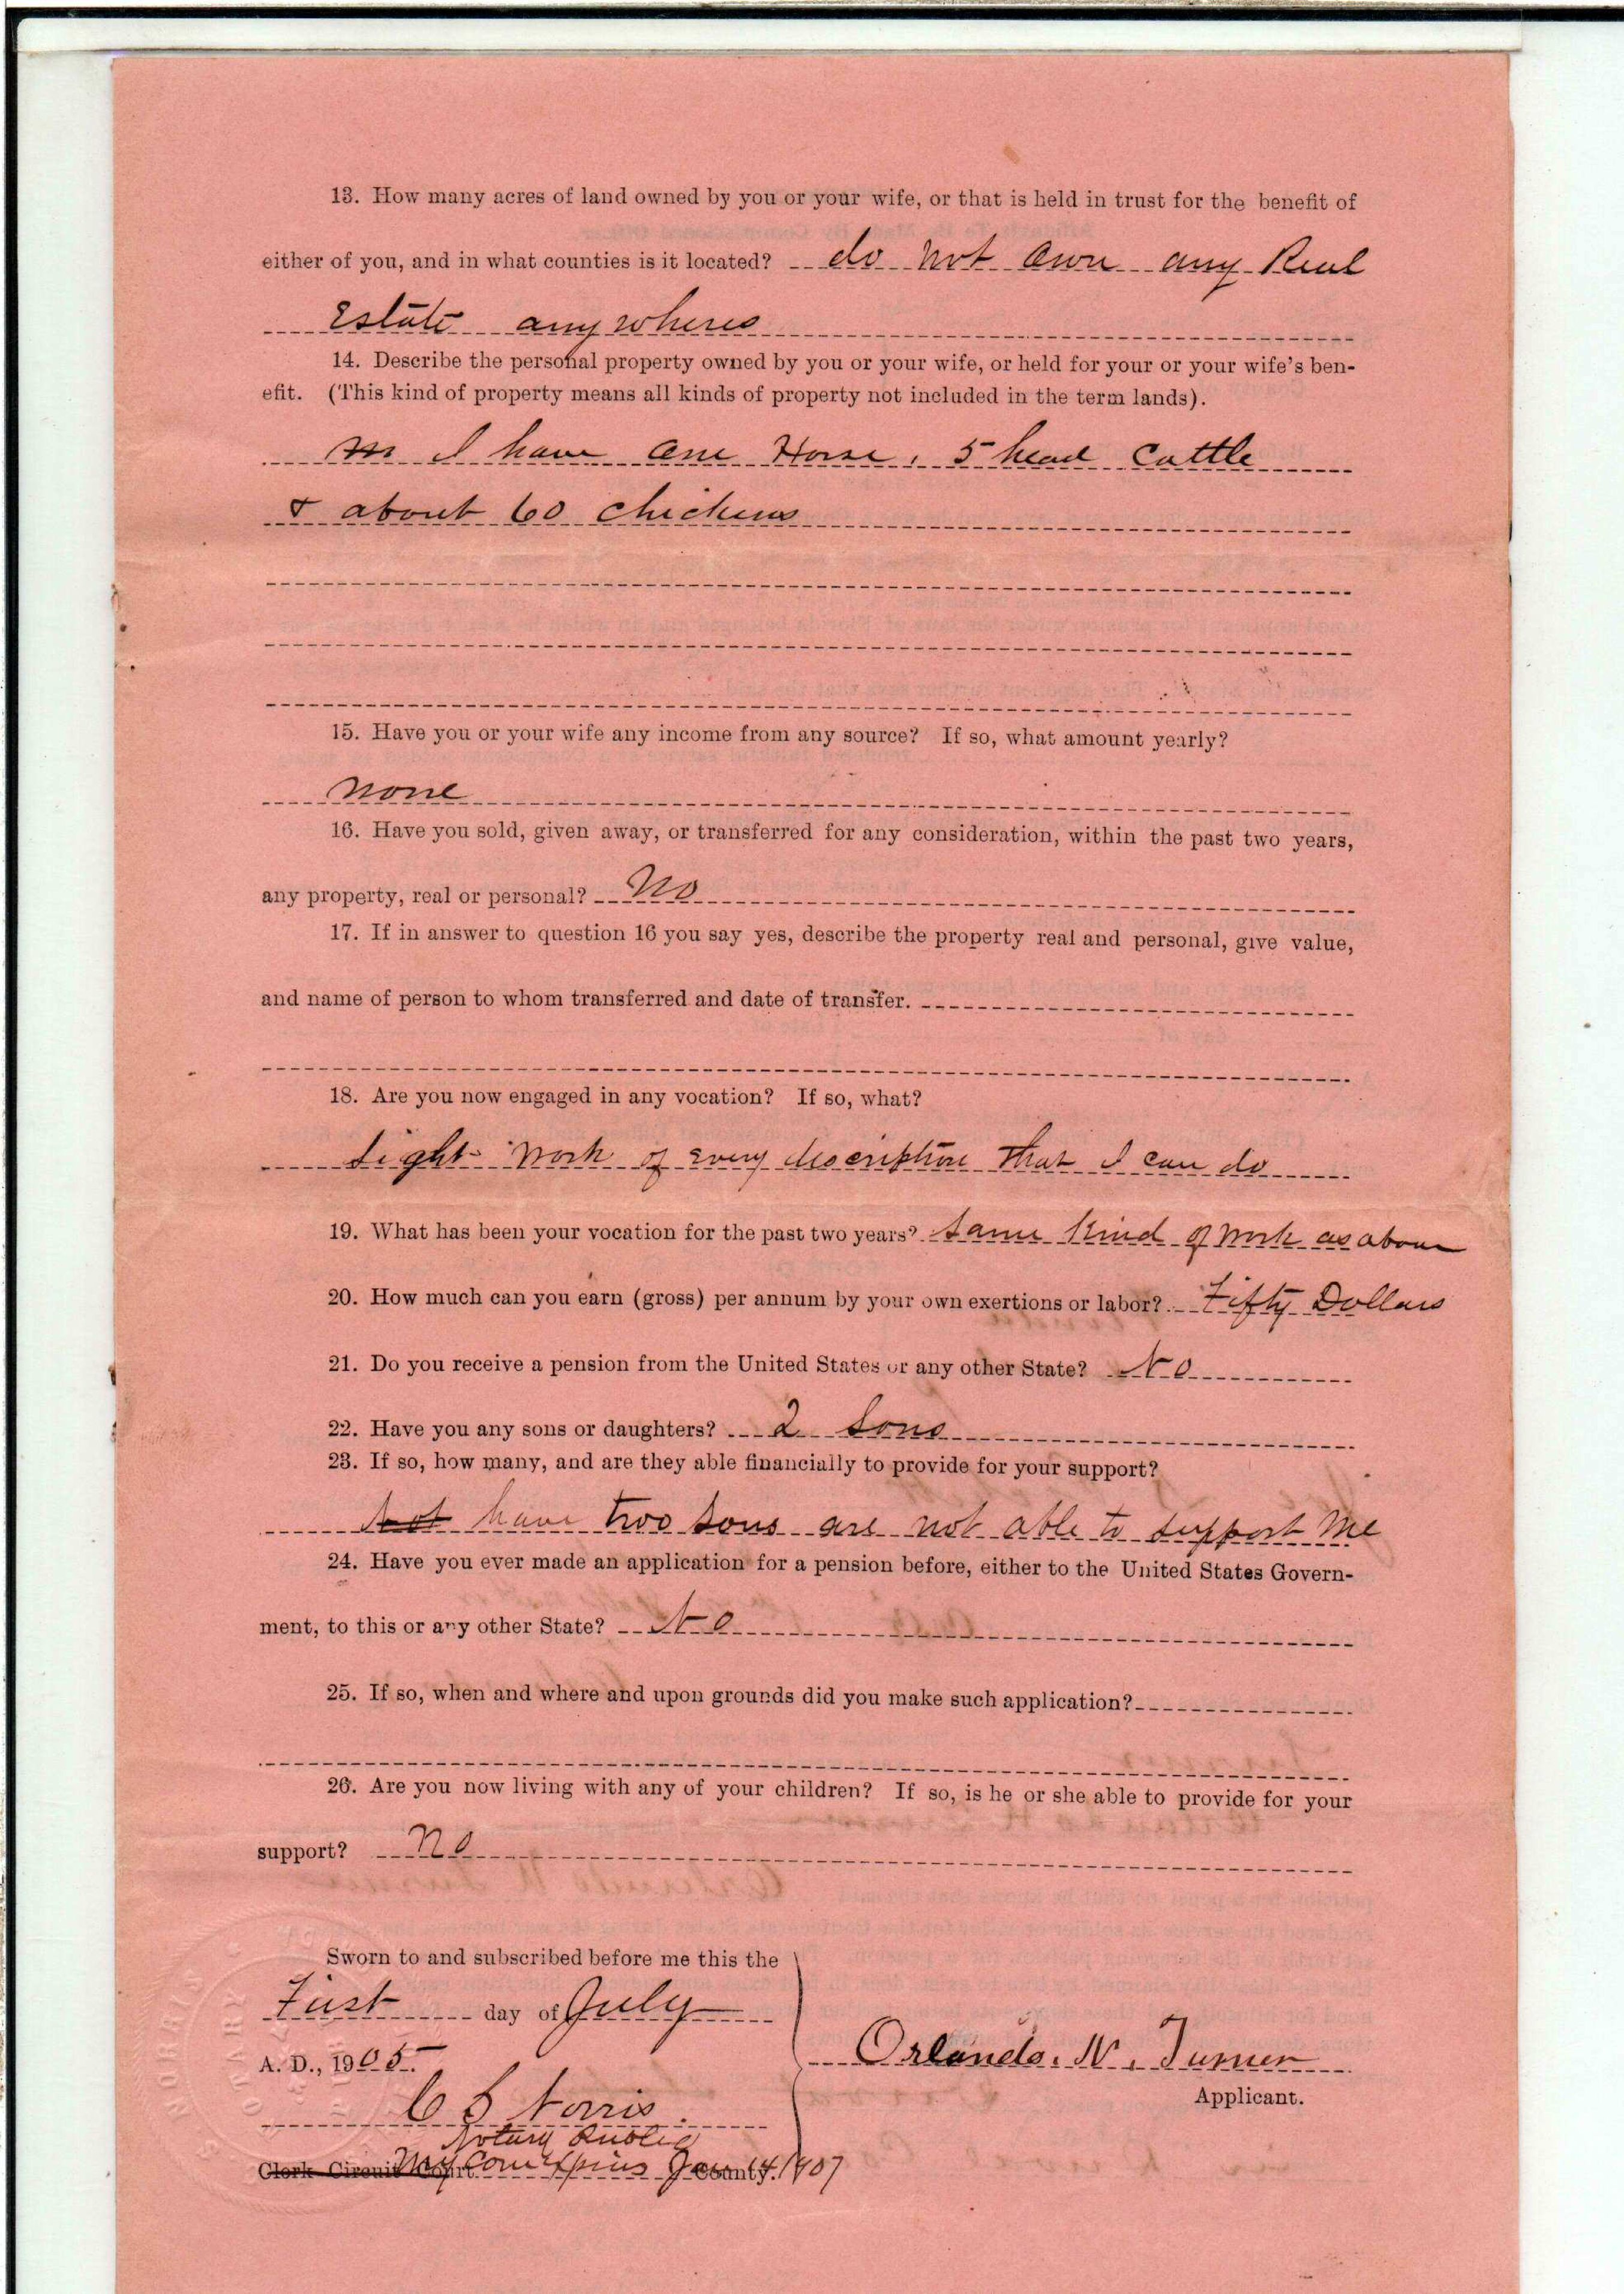 13. How many acres of land owned by you or your wife, or that is held in trust for the benefit of
either of you, and in what counties is it located? do not own any Real
Estate any wheres
14. Describe the personal property owned by you or your wife, or held for your or your wife's ben-
efit. (This kind of property means all kinds of property not included in the term lands).
m I have one Horse, 5 head Cattle
& about 60 chickens
15. Have you or your wife any income from any source? If so, what amount yearly?
none
16. Have you sold, given away, or transferred for any consideration, within the past two years,
any property, real or personal? No
17. If in answer to question 16 you say yes, describe the property real and personal, give value,
and name of person to whom transferred and date of transfer.
18. Are you now engaged in any vocation? If so, what?
Light work of every description that I can do
19. What has been your vocation for the past two years? Same Kind of work as above
20. How much can you earn (gross) per annum by your own exertions or labor? Fifty Dollars
21. Do you receive a pension from the United States or any other State? No
22. Have you any sons or daughters? 2 Sons
23. If so, how many, and are they able financially to provide for your support?
Not have two sons are not able to support me
24. Have you ever made an application for a pension before, either to the United States Govern-
ment, to this or any other State? No
25. If so, when and where and upon grounds did you make such application?
26. Are you now living with any of your children? If so, is he or she able to provide for your
support? no
Sworn to and subscribed before me this the
First day of July
A. D., 1905.
Orlando. N. Turner
Applicant.
C S Norris.
Notary Public
Clerk Circuit Court County.
My Com Expires Jan 14 1907